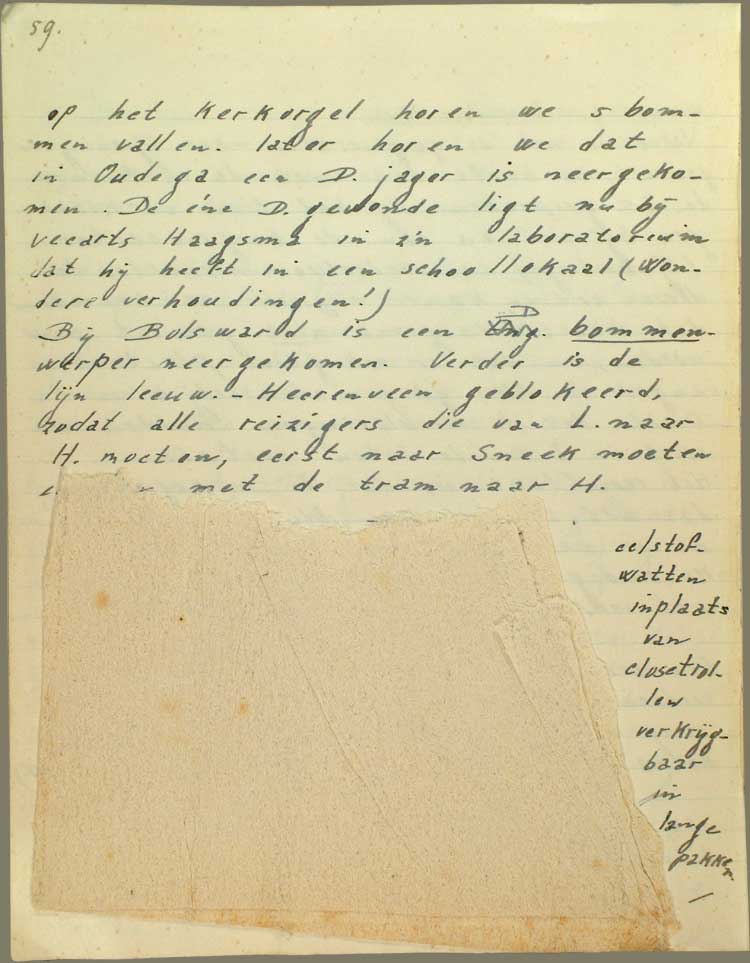 59.
op het kerkorgel horen we 5 bom-
men vallen. later horen we dat
in Oudega een D. jager is neergeko-
men. De éne D. gewonde ligt nu bij
veearts Haagsma in z'n laboratoreuim
dat hij heeft in een schoollokaal (Won-
dere verhoudingen!)
D
Bij Bolsward is een Eng. bommen-
werper neergekomen. Verder is de
lijn leeuw. - Heerenveen geblokeerd,
zodat alle reizigers die van L. naar
H. moeten, eerst naar Sneek moeten
met de tram naar H.
eelstof-
watten
inplaats
van
closetrol-
len
verkrijg-
baar
in
lange
pakken.